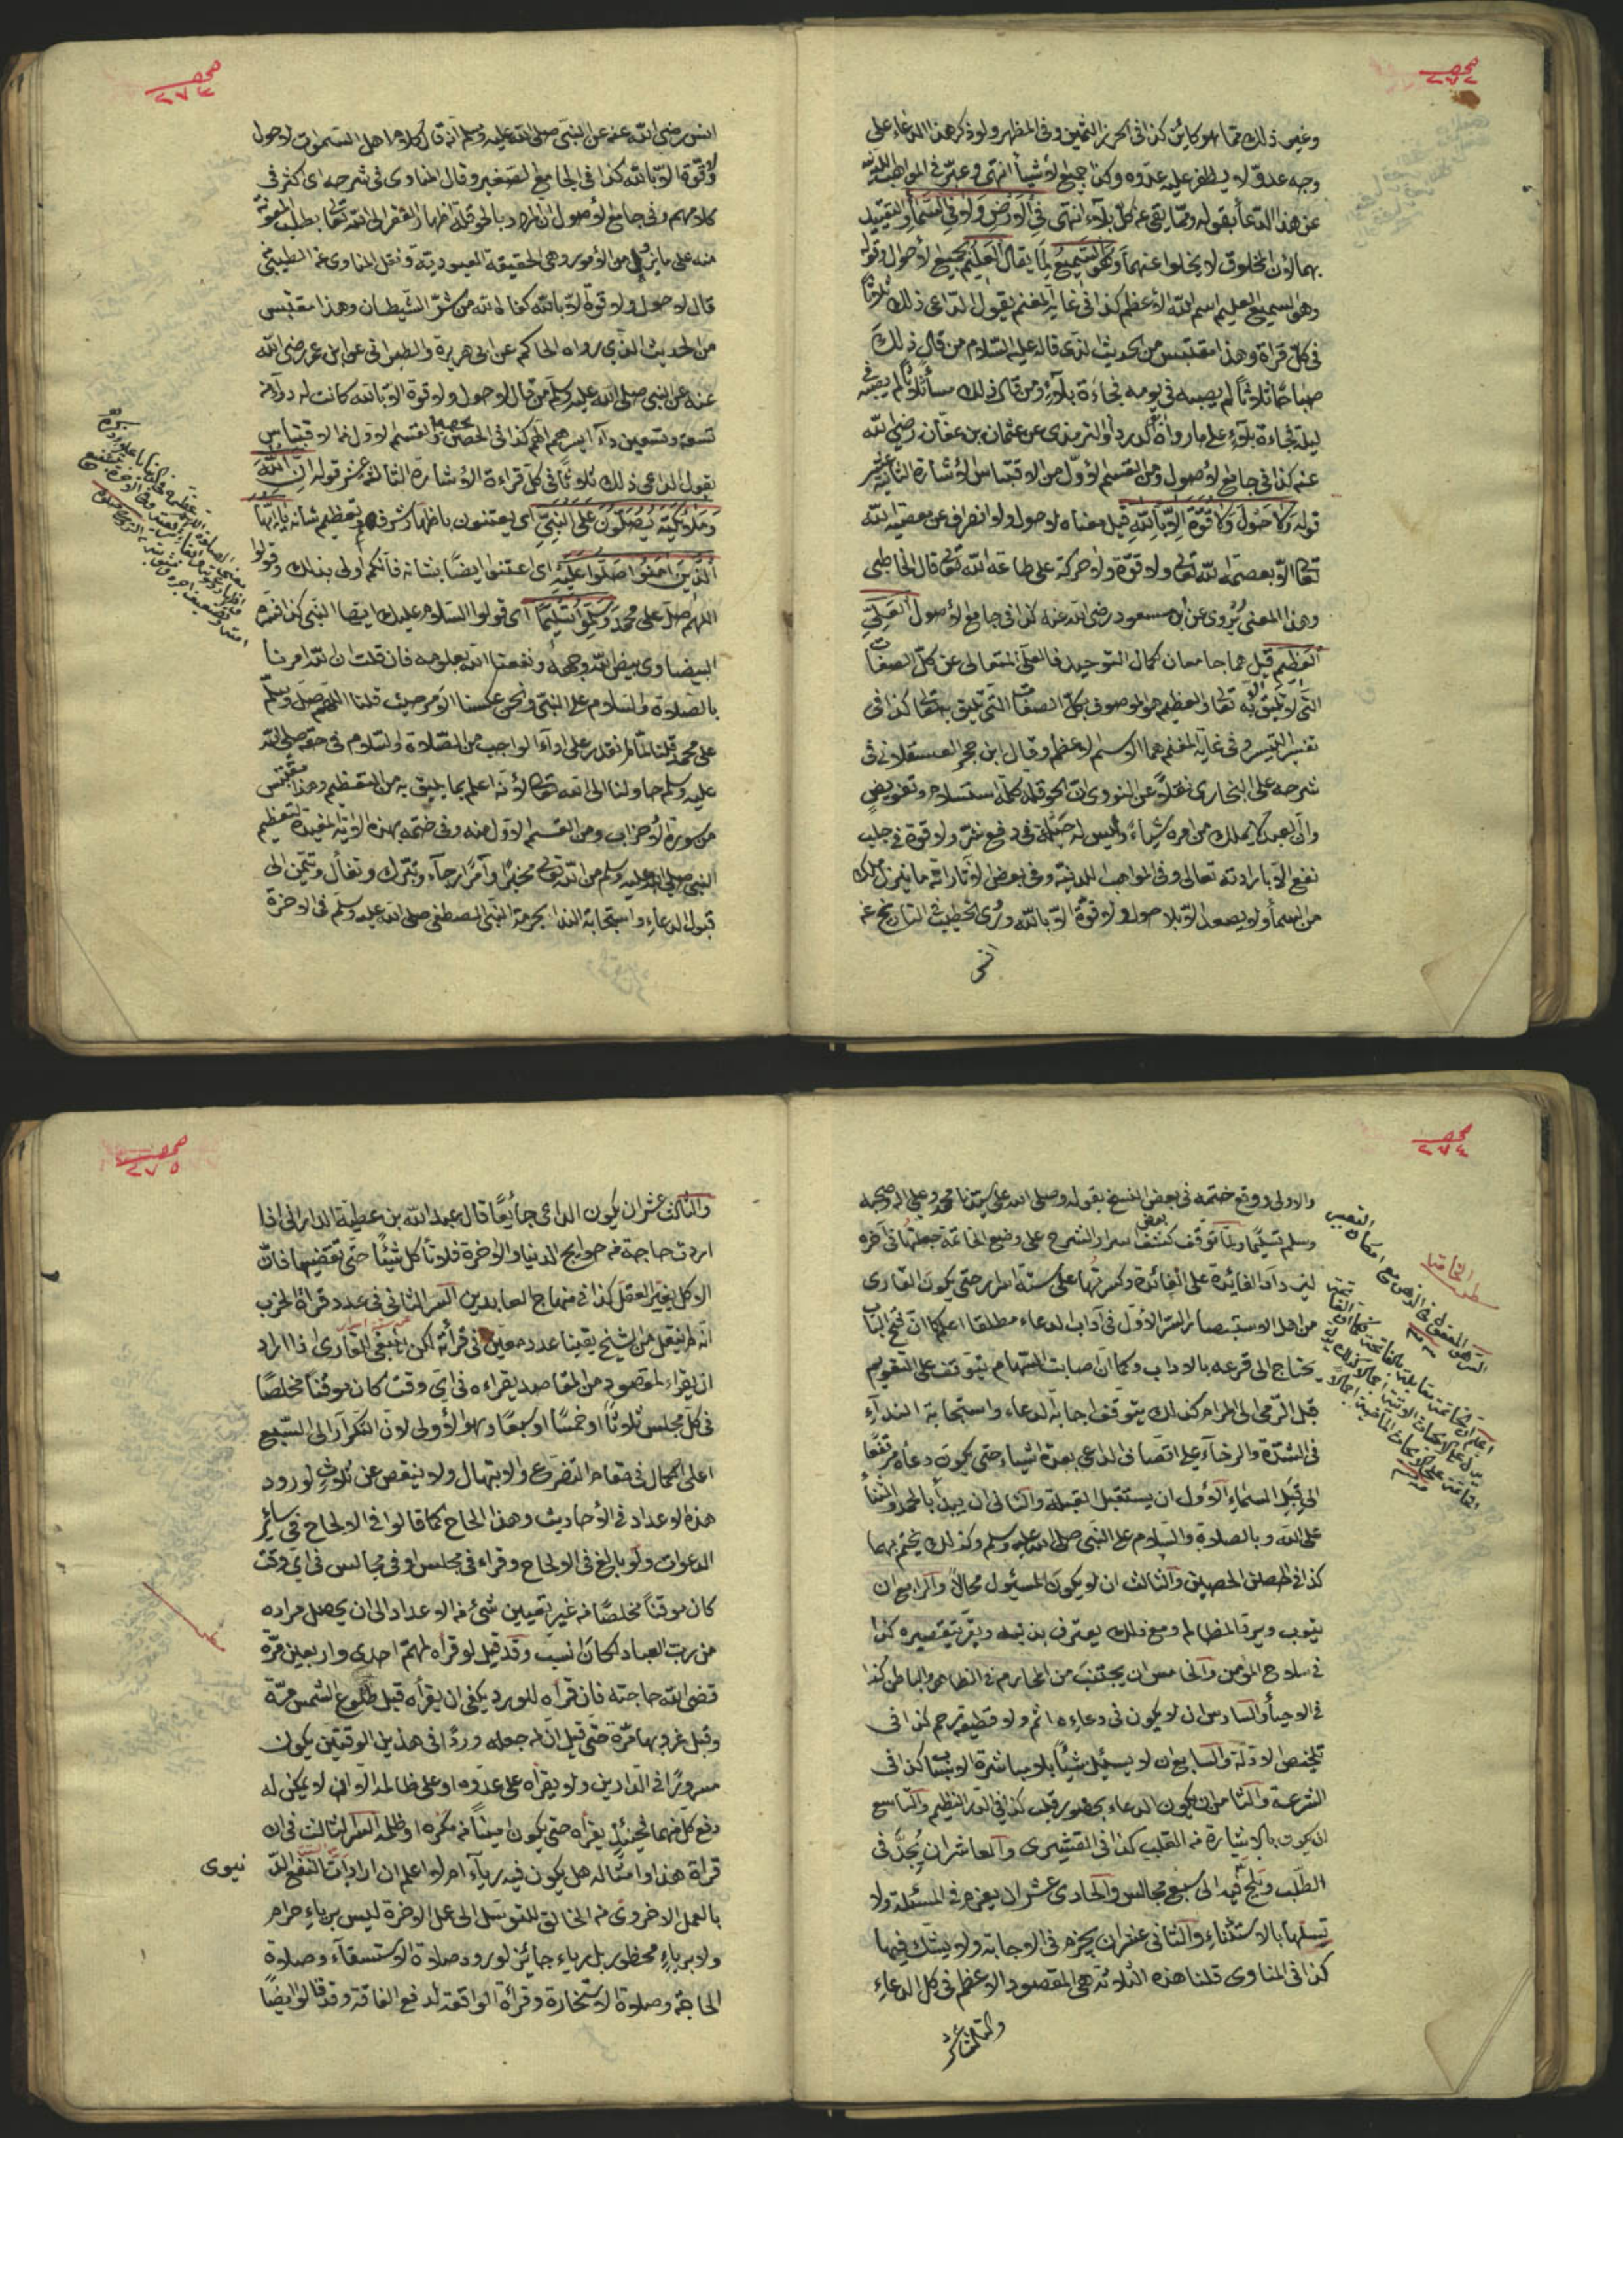 صحـ ٢٧٢
وغير ذلك مما هو كاين كذا في الحرز الثمين وفي المظهر ولو ذكر هذا الدعاء على
وجه عدوّ لا يظفر عليه عدوه وكذا جميع الأشيأ انتهى وعبّر في المواهب اللدنية
عن هذا الدّعأ بقوله ومما يقي من كلّ بلآء انتهى فِي الْاَرْضِ وَلَا فِي السَّمَآءِ والتقييد
بهما لأن المخلوق لا يخلوا عنهما وَهُوَ السَّمِيعُ لِمَا يقال الْعَلِيمُ بجميع الأحوال وقوله
وهو السميع العليم اسم الله الأعظم كذا في غاية المغنم يقول الداعي ذلك ثلاثًا
في كلّ قرأة وهذا مقتبس من الحديث الذي قاله عليه السّلام من قال ذلك
صباحًا ثلاثًا لم يصبه في يومه فجاءة بلآءٍ ومن قال ذلك مسأ ثلاثًا لم يصبه في
ليلة فجاءة بلآءٍ على ما رواه أبو الدردأ والترمذي عن عثمان بن عفّان رضي الله
عنه كذا في جامع الأصول ومن القسم الأوّل من الاقتباس الأشارة الثانية عشر
قوله وَلَا حَوْلَ وَلَا قُوَّةَ اِلَّا بِاللهِ قيل معناه لا حول ولا انصراف عن معصية الله
تعالى الّا بعصمة الله تعالى ولا قوّة ولا حركة على طاعة الله تعالى قال الخاطبي
وهذا المعنى يُرْوى عن ابن مسعود رضي الله عنه كذا في جامع الأصول الْعَلِيِّ
الْعَظِيمِ قيل هما جامعان كمال التوحيد فالعلّي المتعالى عن كلّ الصفات
التي لا تليق به تعالى والعظيم هو الموصوف بكلّ الصفات التي تليق به تعالى كذا في
تفسير التيسير وفي غاية المغنم هما الاسم الاعظم وقال ابن حجر العسقلاني في
شرحه على البخاري نقلًا عن النووي ان الحوقلة كلمة استسلام وتفويض
وان العبد لا يملك من امره شيأً وليس له حيلة في دفع شرّ ولا قوة في جلب
نفع الّا بارادته تعالى وفي المواهب اللدنيّة وفي بعض الآثار انّه ما ينزل ملك
من السمأ ولا يصعد الّا بلا حول ولا قوة الّا بالله وروى الخطيب في التاريخ عن
انس
صحـ ٢٧٣
انس رضي الله عنه عن النبي صلى الله عليه وسلم انّه قال كلام اهل السموات لا حول
ولا قوّة الّا بالله كذا في الجامع الصّغير وقال المناوى في شرحه اى اكثر في
كلامهم وفي جامع الأصول ان المراد بالحوقلة اظهار الفقر الى الله تعالى بطلب المعونة
منه على ما يزاول من الأمور وهي الحقيقة العبوديّة ونقل المناوى عن الطيبي
قال لا حول ولا قوة الّا بالله كفاه الله من شرّ الشّيطان وهذا مقتبس
من الحديث الذي رواه الحاكم عن ابي هريرة والطبراني عن ابن عمر رضي الله
عنه عن النبي صلى الله عليه وسلم من قال لا حول ولا قوة الّا بالله كانت له دوآء من
تسعة وتسعين دآء ايسرهم الهمّ كذا في الحصن الحصين ومن القسم الاول من الاقتباس
يقول الداعي ذلك ثلاثًا في كلّ قراءة الأشارة الثالثة عشر قوله اِنَّ اللهَ
وَمَلٰٓئِكَتَهُ يُصَلُّونَ عَلَى النَّبِيِّ اى يعتنون باظهار شرفه وتعظيم شانه يَآ اَيُّهَا
الَّذِينَ اٰمَنُوا صَلُّوا عَلَيْهِ اى اعتنوا ايضًا بشانه فانكم اولى بذلك وقولوا
اللهم صلّ على محمد وَسَلِّمُوا تَسْلِيمًا اى قولوا السّلام عليك ايّها النبي كذا فسّره
البيضاوى بيض الله وجهه ونفعنا الله بعلومه فان قلت ان الله امرنا
بالصّلاة والسّلام على النبّي ونحن عكسنا الامر حيث قلنا اللهم صلّ وسلّم
على محمد قلنا لمّا لم نقدر على ادآء الواجب من الصّلاة والسّلام في حقه صلى الله
عليه وسلم حاولنا الى الله تعالى لأنّه اعلم بما يليق به من التعظيم وهذا مقتبس
من سورة الأحزاب ومن القسم الاوّل منه وفي ختمه بهذه الآية المفيدة لتعظيم
النبي صلى الله عليه وسلم من الله تعالى مخبرًا وآمرًا رجآء وتبرّك وتفأل وتيمّن الى
قبول الدعاء واستجابة الندا بحرمة النبي المصطفى صلى الله عليه وسلم في الاخرة
صحـ ٢٧٤
والاولى ووقع ختمه في بعض النسخ بقوله وصلى الله على سيّدنا محمد وعلى اله وصحبه
وسلم تسليمًا ولمّا توقف كشف بعض اسرار الشرح على وضع الخاتمة جعلتها في آخره
لتزداد الفائدة على الفائدة وكسرتها على ستّة اسرار حتى يكون القارى
من اهل الاستبصار السّر الأوّل في آداب الدعاء مطلقا اعلم كما انّ فتح الباب
يحتاج الى قرعه بالاداب وكما انّ اصابة السّهام يتوقف على التّقويم
قبل الرّمي الى المرام كذلك يتوقف اجابة الدعاء واستجابة الندآء
في الشّدة والرخآء على اتّصاف الداعى بعدة اشياء حتى يكون دعاه مرتفعًا
الى قِبَل السّماء الأوّل ان يستقبل القبلة والثاني ان يبدأ بالحمد والثنأ
على الله وبالصلاة والسّلام على النبي صلى الله عليه وسلم وكذلك يختم بهما
كذا في الحصن الحصين والثالث ان لا يكون المسئول محالًا والرابع ان
يتوب ويردّ المظالم ومع ذلك يعترف بذنبه ويقرّ بتقصيره كذا
في سلاح المؤمن والخامس ان يجتنب من المحارم في الظاهر والباطن كذا
في الاحيأ والسادس ان لا يكون في دعاءه اثم ولا قطيعة رحم كذا في
تلخيص الادلّة والسابع ان لا يسئل شيئًا بلا مباشرة الاسباب كذا في
الشرعة والثامن ان يكون الدعاء بحضور قلب كذا في الدّر النظيم والتاسع
ان يكون بالاشارة من القلب كذا في القشيري والعاشر ان يُجدَّ في
الطّلب ويلحّ فيه الى سبع مجالس والحادى عشر ان يعزم في المسئلة ولا
يسئلها بالاستثناء والثاني عشر ان يجزم في الاجابة ولا يشك فيها
كذا في المناوى قلنا هذه الثلاثة هي المقصود الاعظم في كل الدعاء
والثالث عشر
صحـ ٢٧٥
والثالث عشر ان يكون الداعى جائعًا قال عبد الله بن عطيّة الداراني اذا
اردت حاجة من حوايج الدنيا والآخرة فلا تأكل شيئًا حتّى تقضيها فانّ
الاكل يغيّر العقل كذا في منهاج العابدين السر الثاني في عدد قرأة الحزب
انّه لم ينقل من الشيخ يقينا عدد معين في قرأته لكن ينبغى للقارى اذا اراد
ان يقراء لمقصود من المقاصد يقراءه في اىّ وقت كان موقنًا مخلصًا
في كلّ مجلس ثلاثًا او خمسًا او سبعًا وهو الأولى لانّ التّكرآر الى السّبع
اعلى الكمال في مقام التضرّع والابتهال ولا ينقص عن ثلاثٍ لورود
هذه الاعداد في الأحاديث وهذا الحاح كما قالوا في الالحاح في سائر
الدعوات ولو بالغ في الالحاح وقراء في مجلس او في مجالس في اىّ وقت
كان موقنًا مخلصًا من غير تعيين شئ من الاعداد الى ان يحصل مراده
من ربّ العباد لكان انسب وقد قيل لو قرأه لمهمّ احدى واربعين مرّة
قضى الله حاجته فان قرأه للورد يكفى ان يقرأه قبل طلوع الشّمس مرّة
وقبل غروبها مرّة حتّى قيل ان من جعله وردًا في هذين الوقتين يكون
مسرورًا في الدّارين ولا يقرأه على عدّوه او على ظالمه الّا ان لا يمكن له
دفع كلّ منهما فحينئذٍ يقرأه حتى يكون امينًا من مكره او ظلمه السر الثالث في ان
قرأة هذا وامثاله هل يكون فيه ريآء ام لا اعلم ان ارادة النّفع الدّنيوى
بالعمل الاخروىّ من الخالق للتوسّل الى عمل الاخرة ليس برياءٍ حرام
ولا برياءٍ محظور بل رياء جائز لورود صلاة الاستسقآء وصلاة
الحاجة وصلاة الاستخارة وقرأة الواقعة لدفع الفاقة وقد قالوا ايضًا